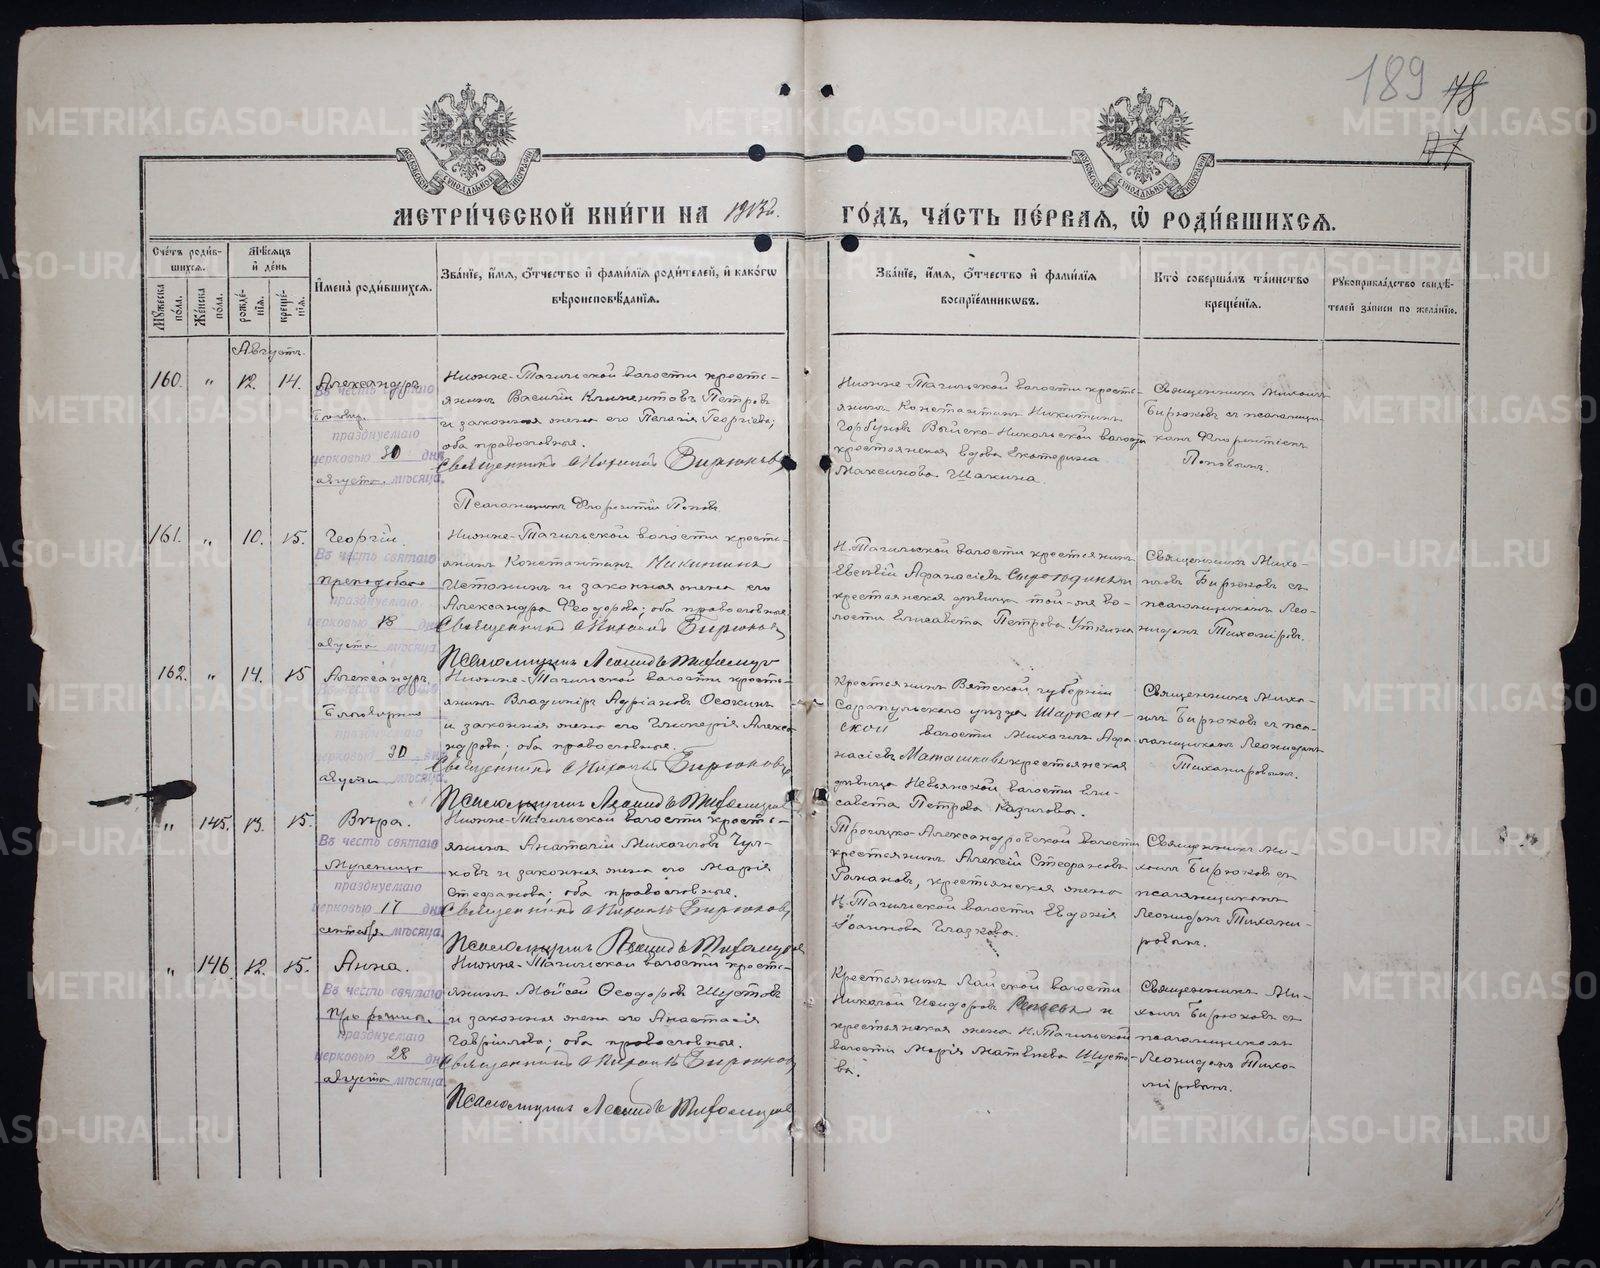 189 78
77
МЕТРИ́ЧЕСКОЙ КНИ́ГИ НА 1913 г.
ГО́ДЪ, ЧА́СТЬ ПЕ́РВАЯ, Ѡ҆ РОДИ́ВШИХСЯ.
Сче́тъ роди́в-
шихся.
Мꙋ́жеска по́ла.
Же́нска по́ла.
Мѣ́сяцъ и҆ де́нь
рожде́-
нїя.
креще́-
нїя.
И҆мена̀ роди́вшихся.
Зва́нїе, и҆́мя, ѻ҆́тчество и҆ фами́лїя роди́телей, и҆ како́гѡ
вѣроисповѣ́данїя.
Зва́нїе, и҆́мя, ѻ҆́тчество и҆ фами́лїя
воспрїе́мникѡвъ.
Кто̀ соверша́лъ та́инство
креще́нїя.
Рꙋкоприкла́дство свидѣ́-
телей за́писи по жела́нїю.
Августъ.
160. " 12. 14. Александръ
Въ честь святаго
Благовѣр.
празднуемаго
церковью 30 дня
августа мѣсяца.
Нижне-Тагильской волости кресть-
янинъ Василій Климентовъ Петровъ
и законная жена его Пелагія Георгіева;
оба православные.
Священникъ Михаилъ Бирюковъ
Псаломщикъ Флорентій Поповъ
Нижне-Тагильской волости кресть-
янинъ Константинъ Никитинъ
Горбуновъ Выйско-Никольской волости
крестьянская вдова Екатерина
Максимова
Священникъ Михаилъ
Бирюковъ съ псаломщи-
комъ Флорентіемъ
Поповымъ.
161. " 10. 15. Георгій.
Въ честь святаго
Преподобнаго
празднуемаго
церковью 18 дня
августа мѣсяца
Нижне-Тагильской волости кресть-
янинъ Константинъ Никитинъ
Истоминъ и законная жена его
Александра Ѳеодорова; оба православные
Священникъ Михаилъ Бирюковъ
Псаломщикъ Леонидъ Тихомировъ
Н.Тагильской волости крестьянинъ
Евгеній Афанасіевъ Сырогодинъ и
крестьянская дѣвица той-же во-
лости Елисавета Петрова Уткина
Священникъ Миха-
илъ Бирюковъ съ
псаломщикомъ Лео-
нидомъ Тихомировъ.
162. " 14. 15 Александръ.
Въ честь святаго
Благовѣрнаго
празднуемаго
церковью 30 дня
августа мѣсяца
Нижне-Тагильской волости кресть-
янинъ Владиміръ Адріановъ Осокинъ
и законная жена его Гликерія Алекса-
ндрова; оба православные.
Священникъ Михаилъ Бирюковъ
Псаломщикъ Леонидъ Тихомировъ
Крестьянинъ Вятской губерніи
Сарапульскаго уѣзда Шаркан-
ской волости Михаилъ Афа-
насіевъ крестьянская
дѣвица Невьянской волости Ели-
савета Петрова
Священникъ Миха-
илъ Бирюковъ съ пса-
ломщикомъ Леонидомъ
Тихомировымъ.
" 145. 13. 15. Вѣра.
Въ честь святаго
Мученицы
празднуемаго
церковью 17 дня
сентября мѣсяца.
Нижне-Тагильской волости кресть-
янинъ Анатолій Михаиловъ Чул-
ковъ и законная жена его Марія
Стефанова; оба православные.
Священникъ Михаилъ Бирюковъ
Псаломщикъ Леонидъ Тихомировъ
Троицко-Александровской волости
крестьянинъ Алексій Стефановъ
Романовъ, крестьянская жена
Н.Тагильской волости Евдокія
Іоаннова Глазкова.
Священникъ Ми-
хаилъ Бирюковъ съ
псаломщикомъ
Леонидомъ Тихоми-
ровымъ.
" 146 12. 15. Анна.
Въ честь святаго
Пророчицы
празднуемаго
церковью 28 дня
августа мѣсяца.
Нижне-Тагильской волости кресть-
янинъ Моѵсей Ѳеодоровъ Шустовъ
и законная жена его Анастасія
Гавріилова; оба православные.
Священникъ Михаилъ Бирюковъ
Псаломщикъ Леонидъ Тихомировъ
Крестьянинъ Лайской волости
Николай Исидоровъ и
крестьянская жена Н.Тагильской
волости Марія Матвѣева Шусто-
ва.
Священникъ Ми-
хаилъ Бирюковъ съ
псаломщикомъ
Леонидомъ Тихо-
мировымъ.
METRIKI.GASO-URAL.RU